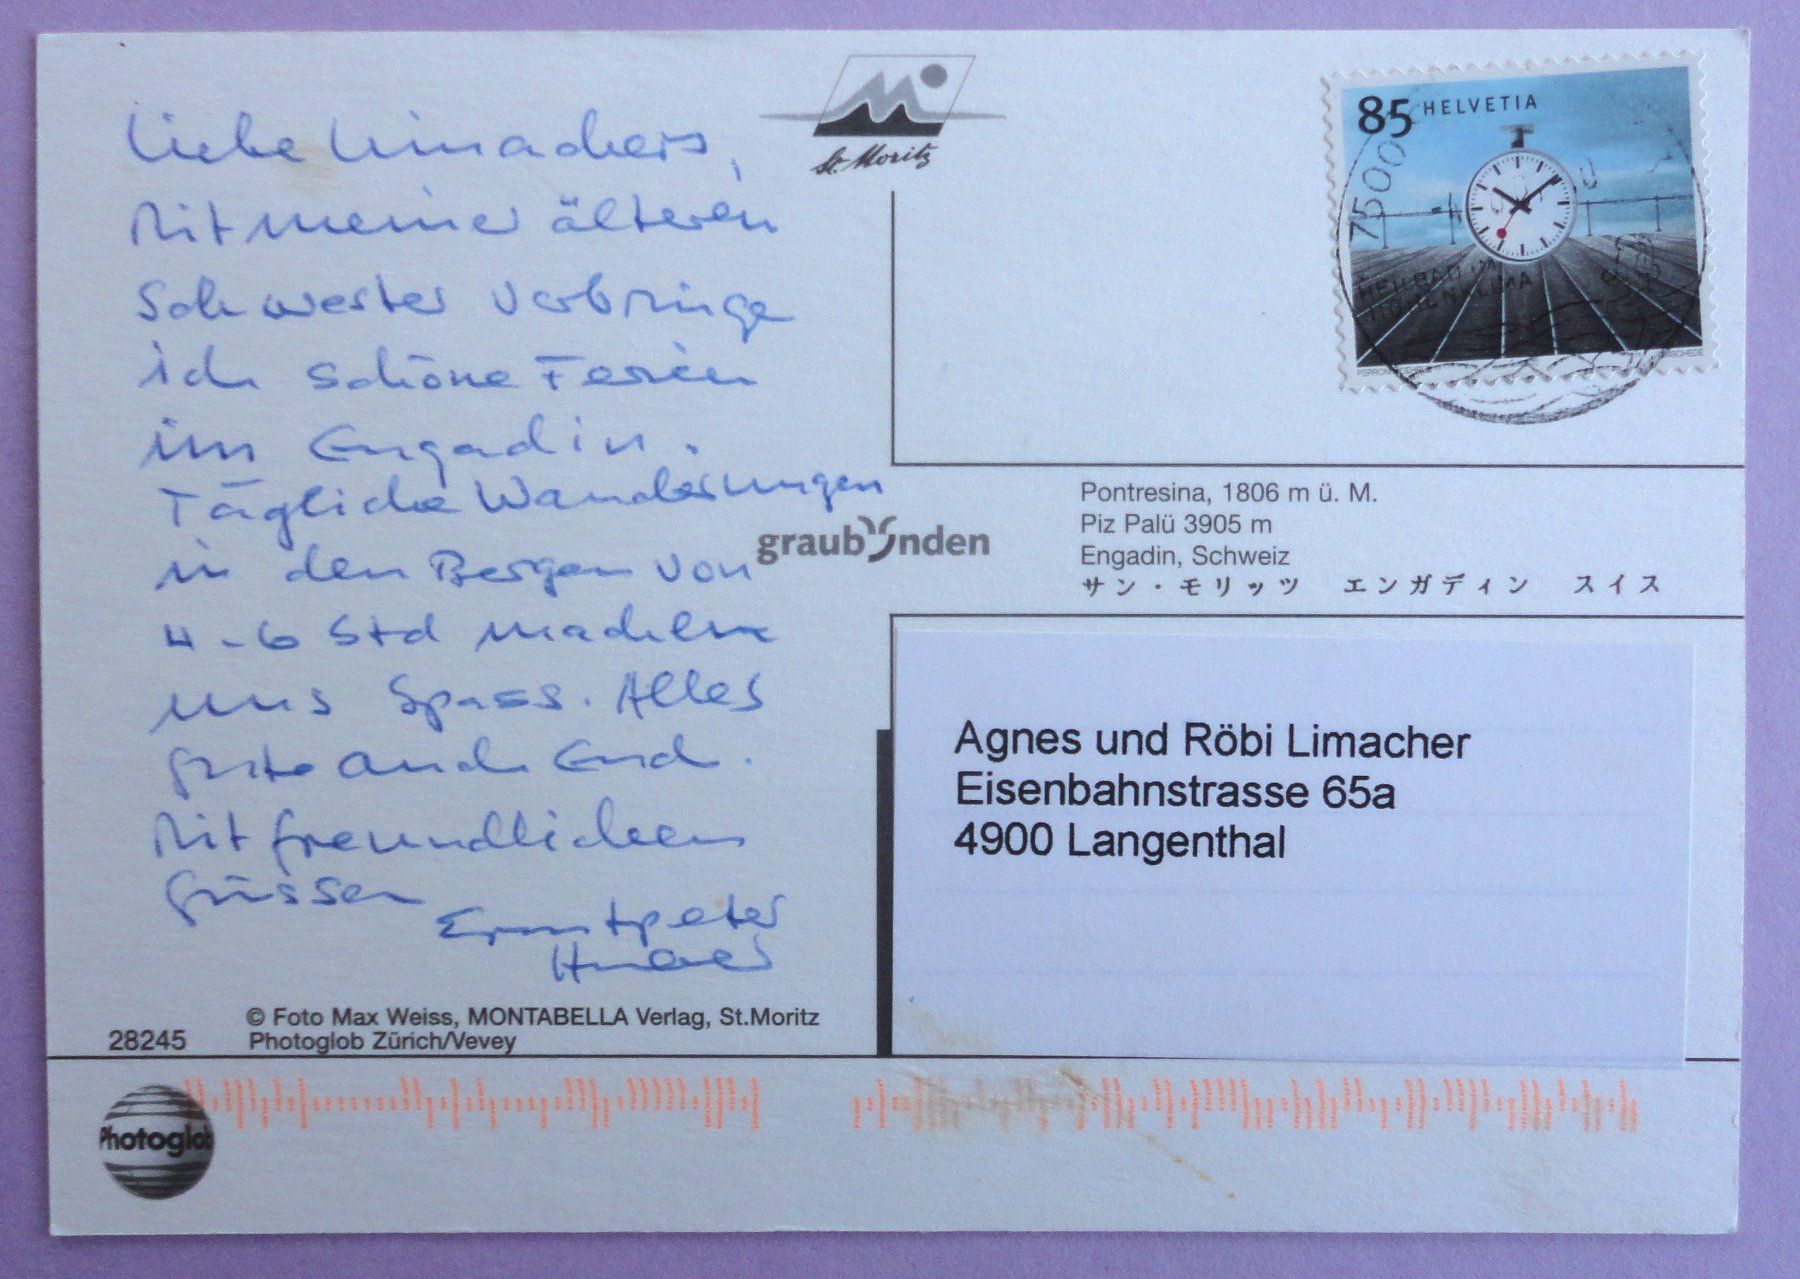 Liebe Limachers,
Mit meiner älteren
Schwester verbringe
ich schöne Ferien
im Engadin.
Tägliche Wanderungen
in den Bergen von
4-6 Std machen
uns Spass. Alles
gute auch Euch.
Mit freundlichen
Grüssen
Ernstpeter
Huber
© Foto Max Weiss, MONTABELLA Verlag, St.Moritz
28245 Photoglob Zürich/Vevey
Photoglob
St. Moritz
graubünden
85 HELVETIA
7500
Pontresina, 1806 m ü. M.
Piz Palü 3905 m
Engadin, Schweiz
サン・モリッツ エンガディン スイス
Agnes und Röbi Limacher
Eisenbahnstrasse 65a
4900 Langenthal